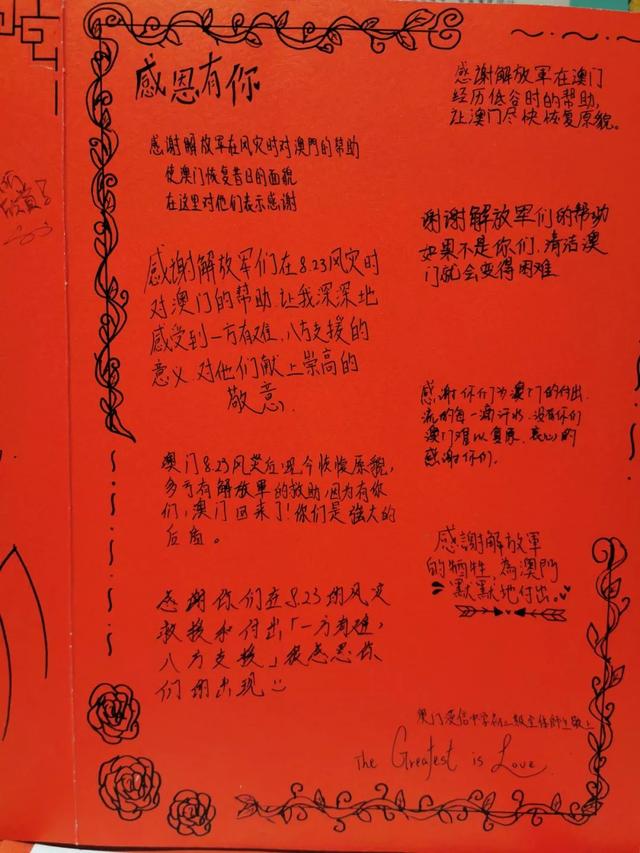 感恩有你
感谢解放军在风灾时对澳門的帮助
使澳门恢复昔日的面貌
在这里对他们表示感谢
感谢解放军们在8.23风灾时
对澳门的帮助.让我深深地
感受到一方有难,八方支援的
意义.对他们献上崇高的
敬意.
澳门8.23风灾后现今恢復原貌,
多亏有解放軍的救助,因为有你
们,澳门回来了!你们是強大的
后盾。
感谢你们在8.23的风灾
救援和付出「一方有难,
八方支援」很感恩你
们的出现
感谢解放军在澳门
经历低谷时的帮助,
让澳门尽快恢复原貌。
谢谢解放军们的帮助
如果不是你们,清洁澳
门就会变得困难
感谢你们为澳门的付出
流的每一滴汗水,没有你们
澳门难以复原,衷心的
感谢你们.
感謝解放軍
的犧牲,為澳門
默默地付出.
澳门 信中学 级全体师生敬上
The Greatest is Love